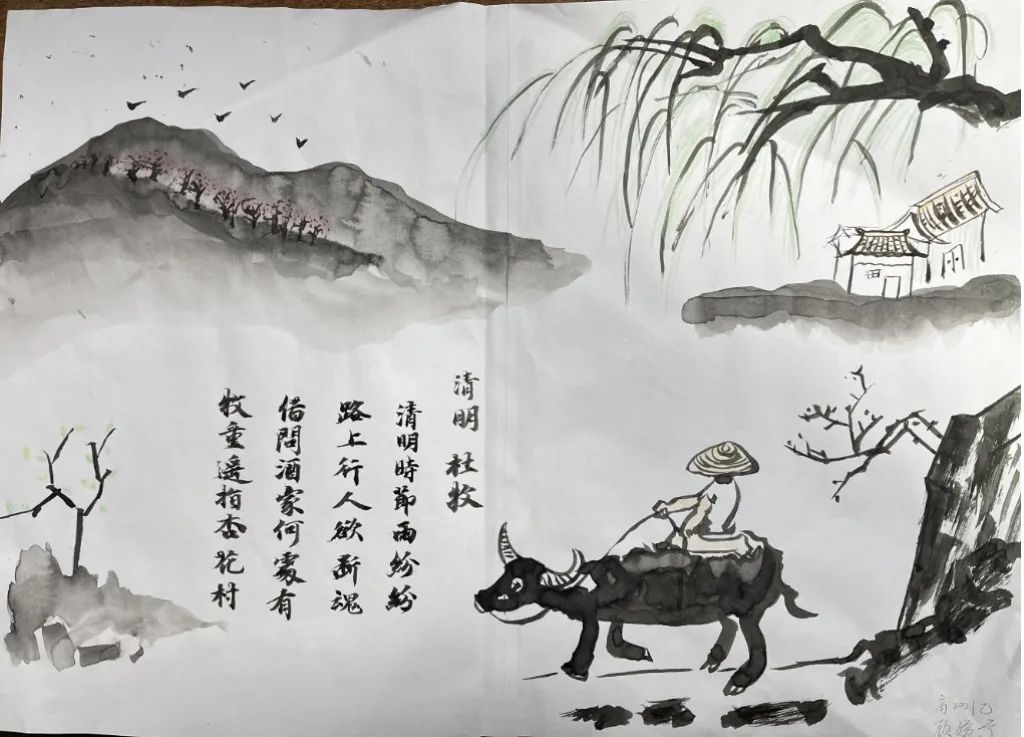 清明 杜牧
清明時節雨紛紛
路上行人欲斷魂
借問酒家何處有
牧童遥指杏花村